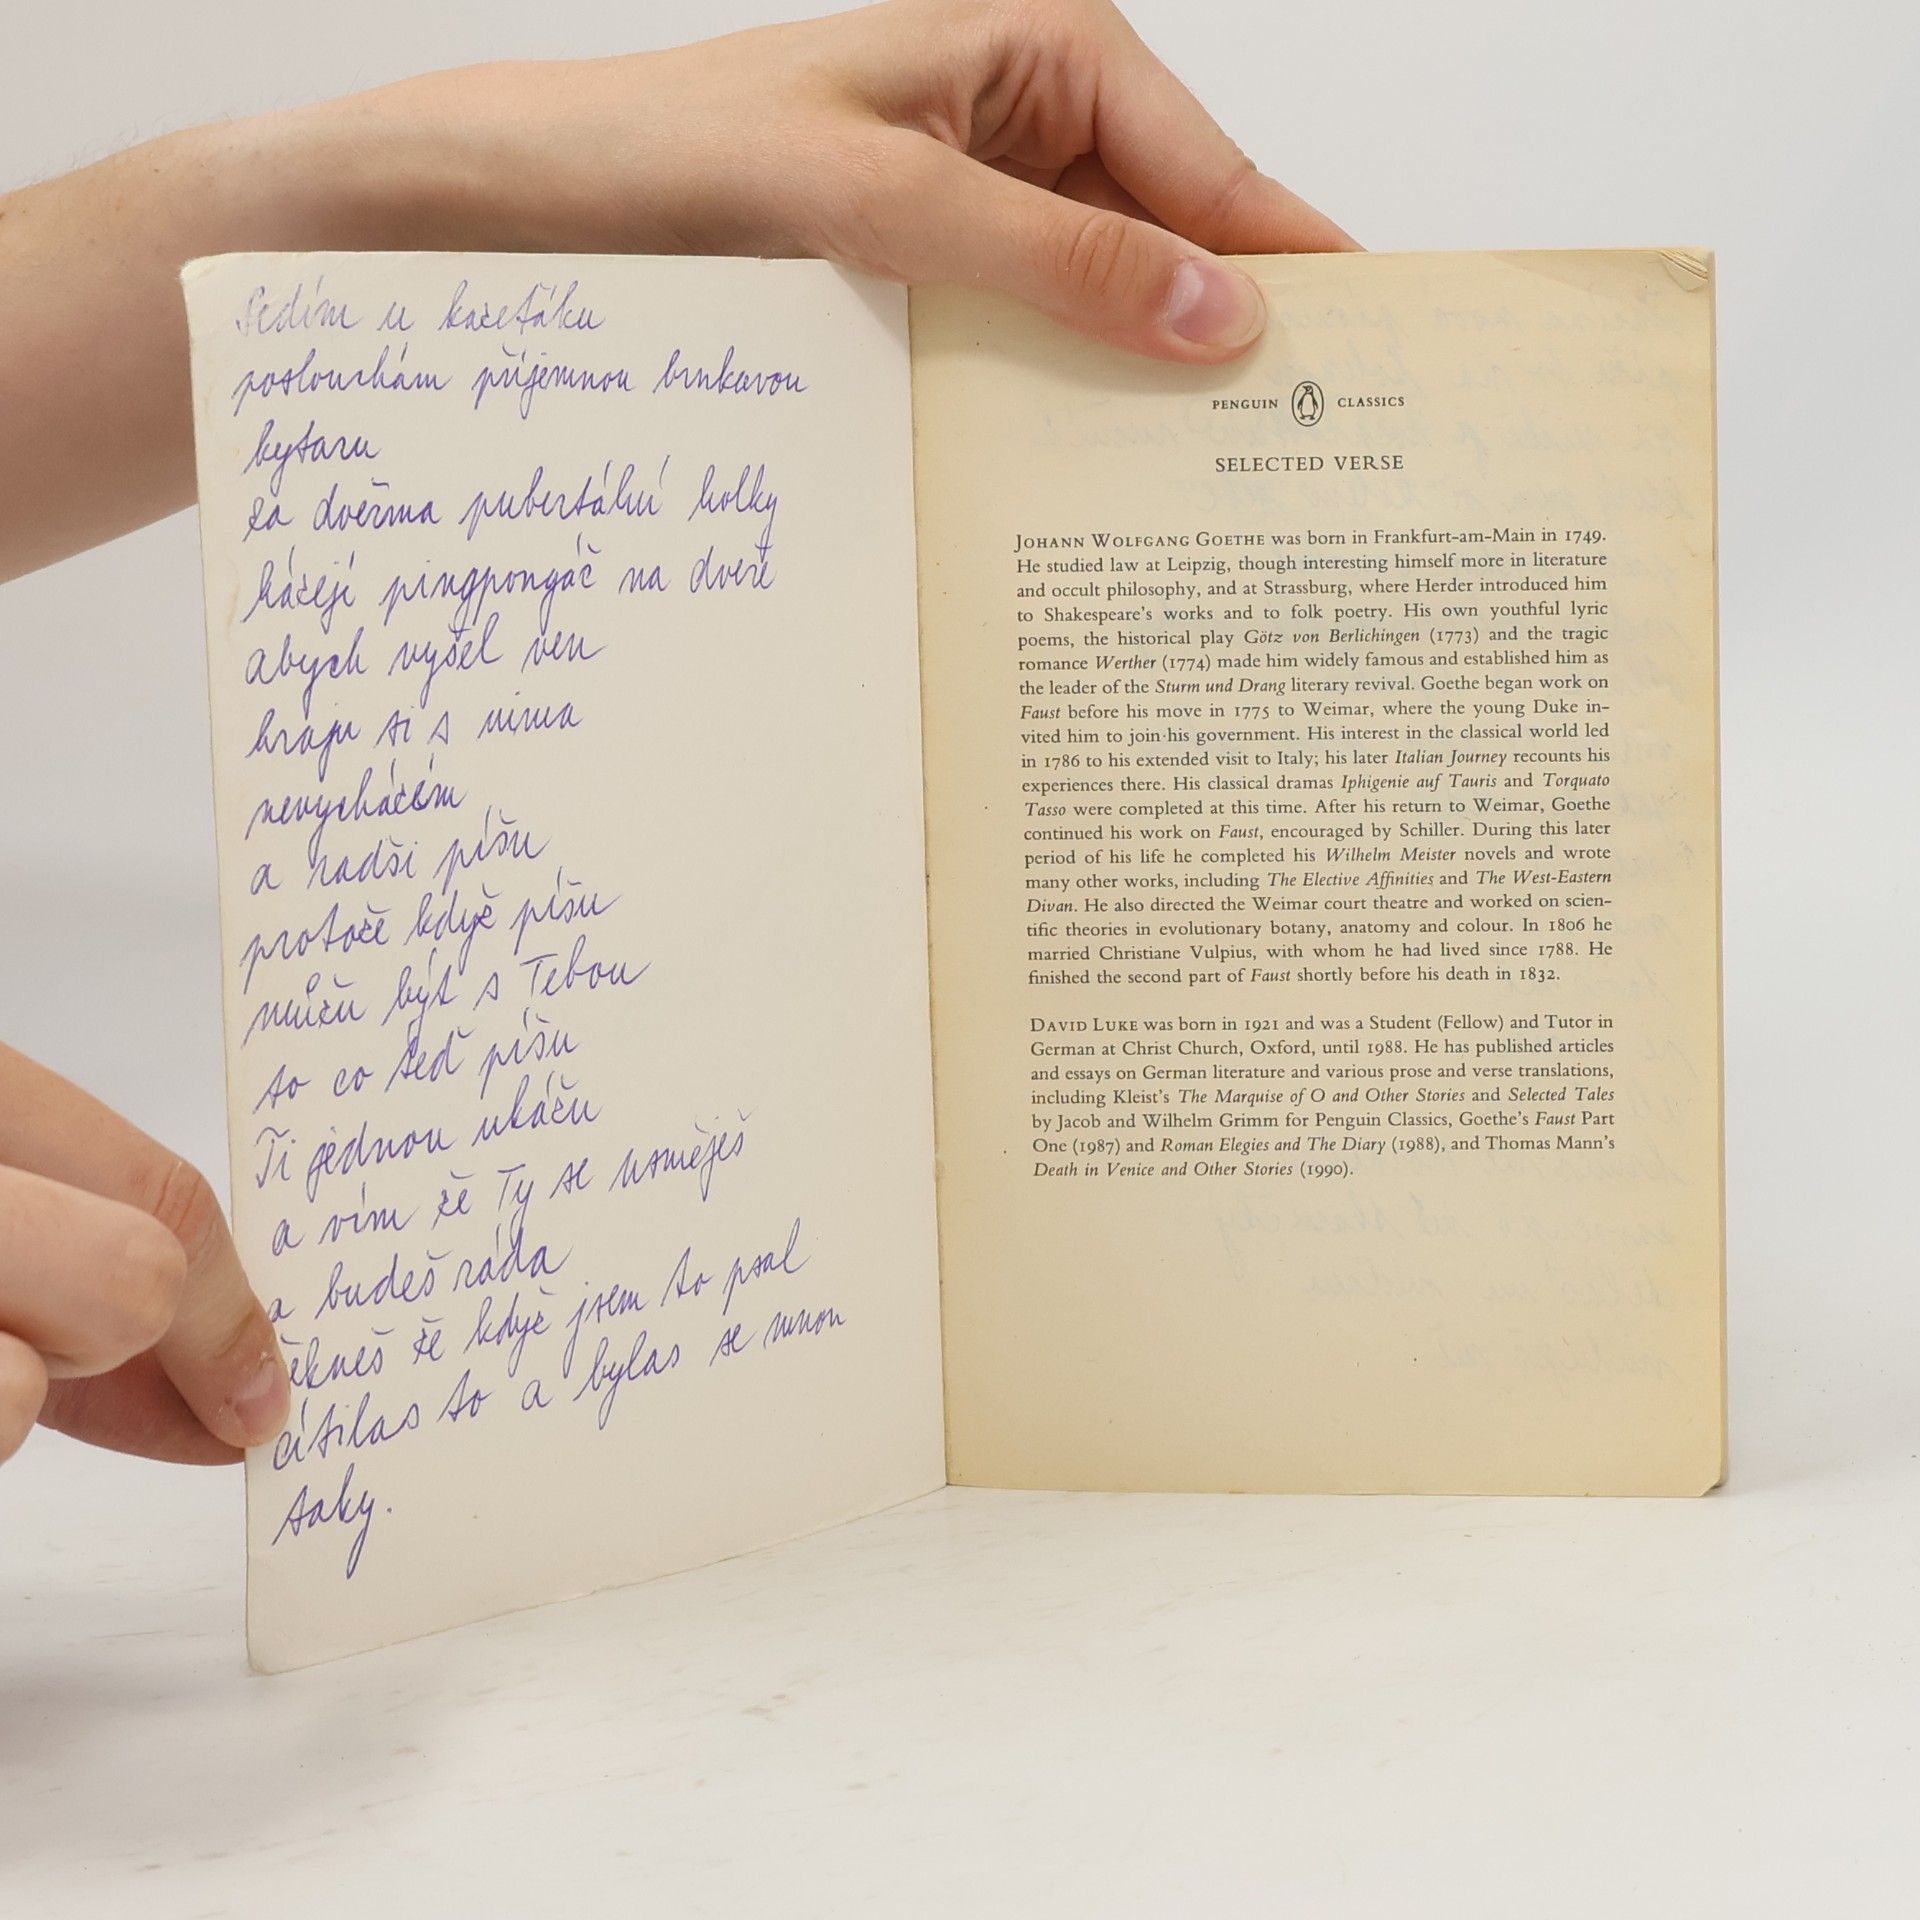 Sedím u kazeťáku
poslouchám příjemnou brnkavou
kytaru
za dvěrma pubertální holky
házejí pingpongáč na dveře
abych vyšel ven
hraju si s nima
nevycházím
a radši píšu
protože když píšu
můžu být s Tebou
to co teď píšu
Ti jednou ukážu
a vím že Ty se usměješ
a budeš ráda
řekneš že když jsem to psal
cítilas to a bylas se mnou
taky.
PENGUIN CLASSICS
SELECTED VERSE
JOHANN WOLFGANG GOETHE was born in Frankfurt-am-Main in 1749.
He studied law at Leipzig, though interesting himself more in literature
and occult philosophy, and at Strassburg, where Herder introduced him
to Shakespeare's works and to folk poetry. His own youthful lyric
poems, the historical play Götz von Berlichingen (1773) and the tragic
romance Werther (1774) made him widely famous and established him as
the leader of the Sturm und Drang literary revival. Goethe began work on
Faust before his move in 1775 to Weimar, where the young Duke in-
vited him to join his government. His interest in the classical world led
in 1786 to his extended visit to Italy; his later Italian Journey recounts his
experiences there. His classical dramas Iphigenie auf Tauris and Torquato
Tasso were completed at this time. After his return to Weimar, Goethe
continued his work on Faust, encouraged by Schiller. During this later
period of his life he completed his Wilhelm Meister novels and wrote
many other works, including The Elective Affinities and The West-Eastern
Divan. He also directed the Weimar court theatre and worked on scien-
tific theories in evolutionary botany, anatomy and colour. In 1806 he
married Christiane Vulpius, with whom he had lived since 1788. He
finished the second part of Faust shortly before his death in 1832.
DAVID LUKE was born in 1921 and was a Student (Fellow) and Tutor in
German at Christ Church, Oxford, until 1988. He has published articles
and essays on German literature and various prose and verse translations,
including Kleist's The Marquise of O and Other Stories and Selected Tales
by Jacob and Wilhelm Grimm for Penguin Classics, Goethe's Faust Part
One (1987) and Roman Elegies and The Diary (1988), and Thomas Mann's
Death in Venice and Other Stories (1990).